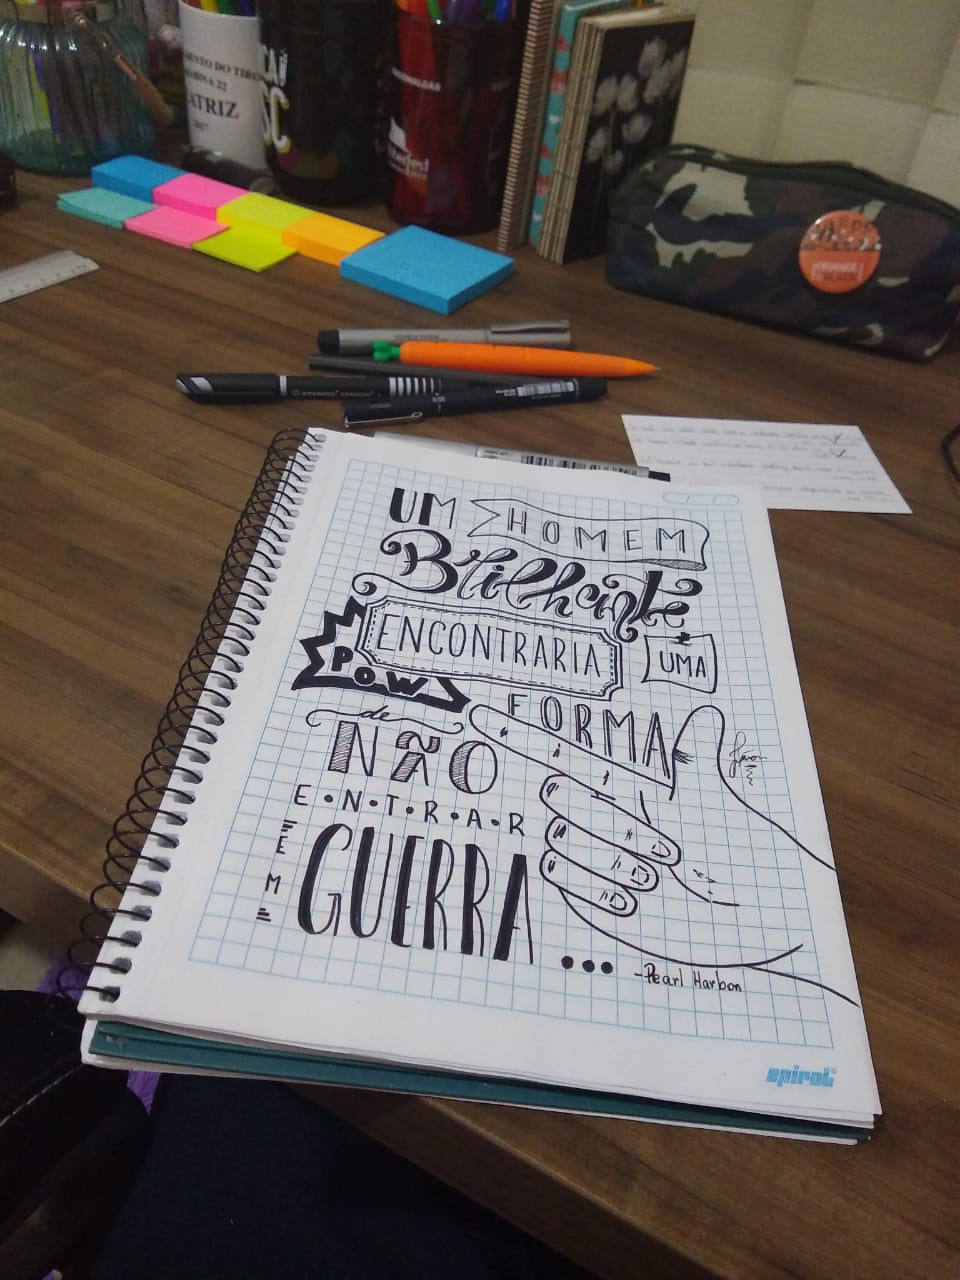 22
ATRIZ
2017
SC
UM HOMEM
Brilhante
ENCONTRARIA UMA
POW
FORMA
de
NÃO
E.N.T.R.A.R
EM
GUERRA...
-Pearl Harbon
spiral